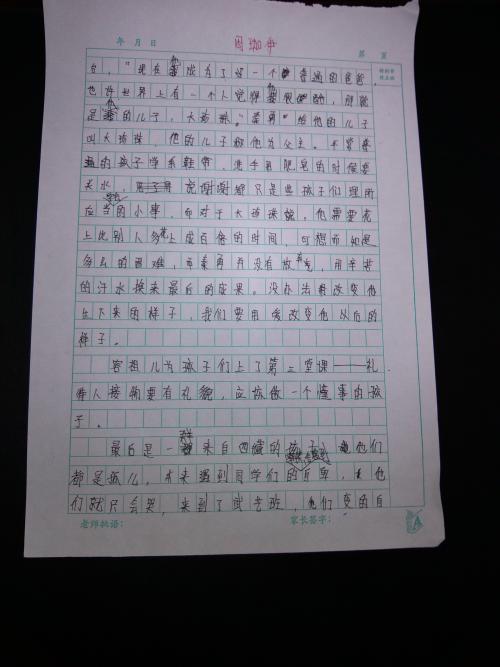 年 月 日
第 页
台，"现在他成为了一个普通的爸爸，
也许世界上有一个人觉得他很酷，那就
是他的儿子，大珍珠。"秦勇"给他的儿子
叫大珍珠，他的儿子称他为父王。平常普
通的孩子学系鞋带，洗手用肥皂的时候要
关水，说谢谢都只是些孩子们理所
应当的小事，而对于大珍珠说，他需要花
上比别人多上成百倍的时间，可想而知是
多么的困难，而秦勇并没有放弃，用辛苦
的汗水换来最后的成果。没办法看改变他
生下来的样子，我们要用爱改变他以后的
样子。
容祖儿为孩子们上了第三堂课——礼
待人接物要有礼貌，应该做一个懂事的孩
子。
最后是一群来自四川的孩子，他们
都是孤儿，本来遇到同学们的自卑，他
们就只会哭，来到了班，他们变的自
老师批语：
家长签字：